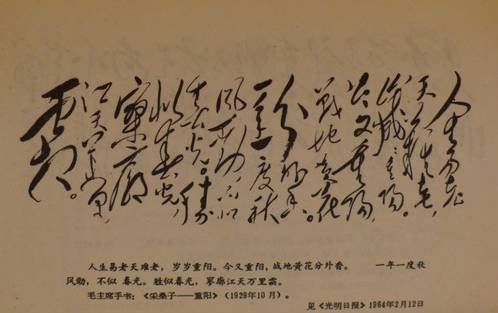 人生易老
天难老,
岁岁重阳。
今又重阳,
战地黄花
分外香。
一年一度秋
风劲不似
春光。胜
似春光,
寥廓
江天万里
霜。
人生易老天难老,岁岁重阳。今又重阳,战地黄花分外香。 一年一度秋
风劲,不似 春光。胜似春光,寥廓江天万里霜。
毛主席手书:《采桑子——重阳》(1929年10月)。
见《光明日报》1964年2月12日